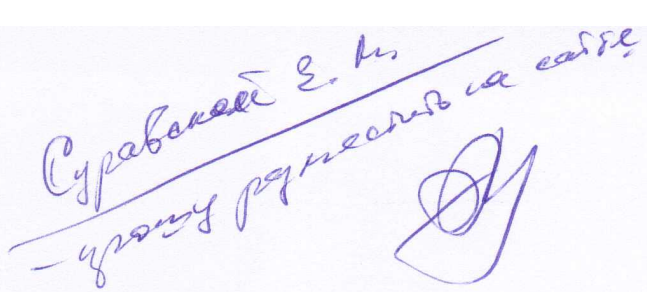 Суравской Е. М.
- прошу разместить на сайте